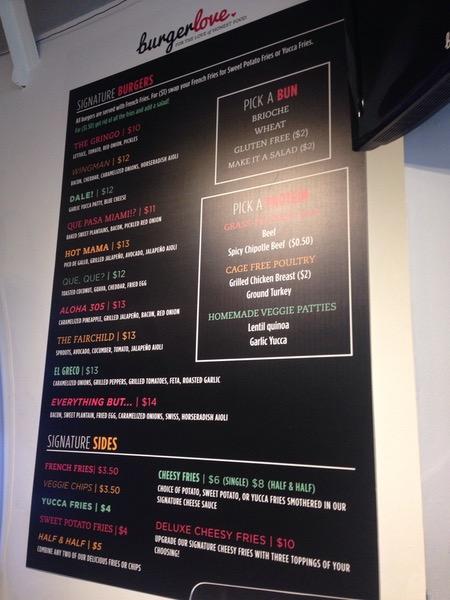 burgerlove.
FOR THE LOVE of HONEST FOOD
SIGNATURE BURGERS
All burgers are served with French Fries. For ($1) swap your French Fries for Sweet Potato Fries or Yucca Fries.
For ($1.50) get rid of all the fries and add a salad!
THE GRINGO | $10
LETTUCE, TOMATO, RED ONION, PICKLES
WINGMAN | $12
BACON, CHEDDAR, CARAMELIZED ONIONS, HORSERADISH AIOLI
DALE! | $12
GARLIC YUCCA PATTY, BLUE CHEESE
QUE PASA MIAMI!? | $11
BAKED SWEET PLANTAINS, BACON, PICKLED RED ONION
HOT MAMA | $13
PICO DE GALLO, GRILLED JALAPEÑO, AVOCADO, JALAPEÑO AIOLI
QUE, QUE? | $12
TOASTED COCONUT, GUAVA, CHEDDAR, FRIED EGG
ALOHA 305 | $13
CARAMELIZED PINEAPPLE, GRILLED JALAPEÑO, BACON, RED ONION
THE FAIRCHILD | $13
SPROUTS, AVOCADO, CUCUMBER, TOMATO, JALAPEÑO AIOLI
EL GRECO | $13
CARAMELIZED ONIONS, GRILLED PEPPERS, GRILLED TOMATOES, FETA, ROASTED GARLIC
EVERYTHING BUT... | $14
BACON, SWEET PLANTAIN, FRIED EGG, CARAMELIZED ONIONS, SWISS, HORSERADISH AIOLI
PICK A BUN
BRIOCHE
WHEAT
GLUTEN FREE ($2)
MAKE IT A SALAD ($2)
PICK A PROTEIN
Beef
Spicy Chipotle Beef ($0.50)
CAGE FREE POULTRY
Grilled Chicken Breast ($2)
Ground Turkey
HOMEMADE VEGGIE PATTIES
Lentil quinoa
Garlic Yucca
SIGNATURE SIDES
FRENCH FRIES | $3.50
VEGGIE CHIPS | $3.50
YUCCA FRIES | $4
SWEET POTATO FRIES | $4
HALF & HALF | $5
COMBINE ANY TWO OF OUR DELICIOUS FRIES OR CHIPS
CHEESY FRIES | $6 (SINGLE) $8 (HALF & HALF)
CHOICE OF POTATO, SWEET POTATO, OR YUCCA FRIES SMOTHERED IN OUR
SIGNATURE CHEESE SAUCE
DELUXE CHEESY FRIES | $10
UPGRADE OUR SIGNATURE CHEESY FRIES WITH THREE TOPPINGS OF YOUR
CHOOSING!